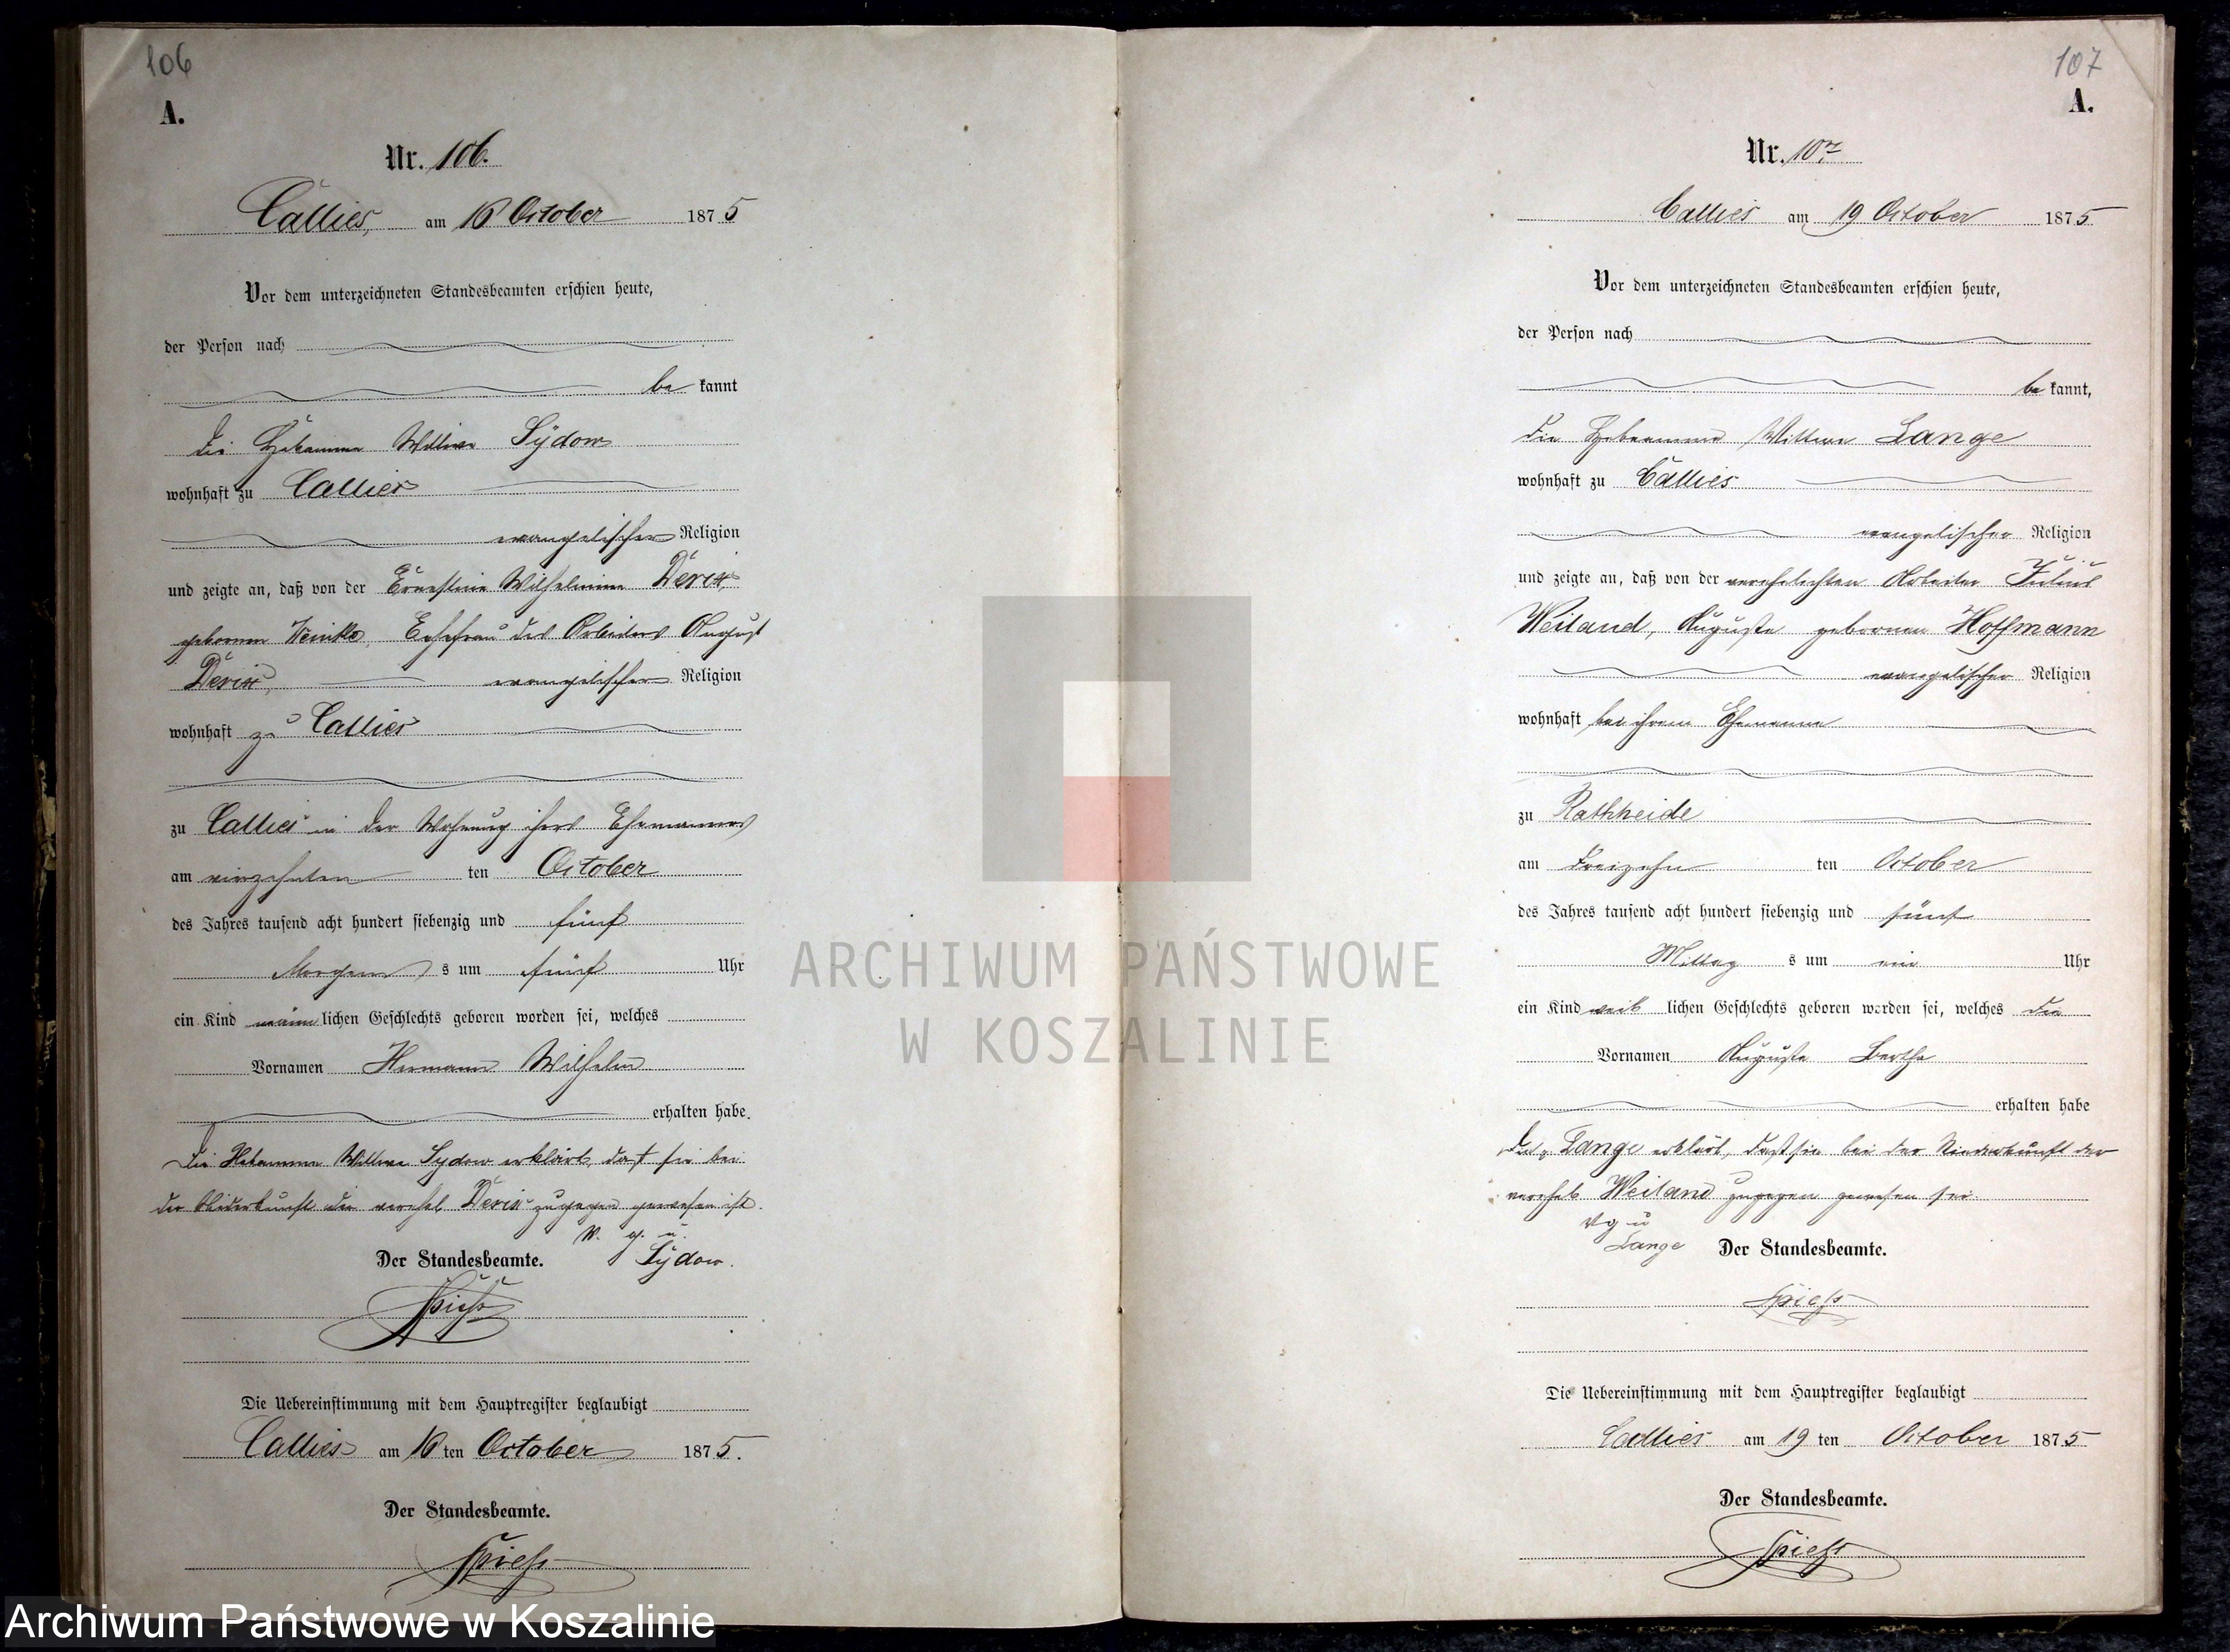 106
A.
Nr. 106.
Callies, am 16 October 1875
Vor dem unterzeichneten Standesbeamten erschien heute,
der Person nach
be kannt
die Hebamme Wittwe Sydow
wohnhaft zu Callies
evangelischer Religion
und zeigte an, daß von der Ernestine Wilhelmine
gebornen Ehefrau des Arbeiters August
evangelischer Religion
wohnhaft zu Callies
zu Callies in der Wohnung ihres Ehemannes
am vierzehnten ten October
des Jahres tausend acht hundert siebenzig und fünf
Morgens s um fünf Uhr
ein Kind männlichen Geschlechts geboren worden sei, welches
Vornamen Hermann Wilhelm
erhalten habe.
Die Hebamme Wittwe Sydow erklärt, daß sie bei
der Niederkunft der verehel zugegen gewesen ist.
v. g. u.
Der Standesbeamte. Sydow.
Spiess
Die Uebereinstimmung mit dem Hauptregister beglaubigt
Callies am 16 ten October 1875.
Der Standesbeamte.
Spiess
107
A.
Nr. 107
Callies am 19 October 1875
Vor dem unterzeichneten Standesbeamten erschien heute,
der Person nach
be kannt,
die Hebamme Wittwe Lange
wohnhaft zu Callies
evangelischer Religion
und zeigte an, daß von der verehelichten Arbeiter Julius
Weiland, Auguste gebornen Hoffmann
evangelischer Religion
wohnhaft bei ihrem Ehemanne
zu Rathheide
am dreizehn ten October
des Jahres tausend acht hundert siebenzig und fünf
Mittag s um ein Uhr
ein Kind weiblichen Geschlechts geboren worden sei, welches die
Vornamen Auguste Bertha
erhalten habe
Die Lange erklärt, daß sie bei der Niederkunft der
verehel Weiland zugegen gewesen sei.
v g u
Lange Der Standesbeamte.
Spiess
Die Uebereinstimmung mit dem Hauptregister beglaubigt
Callies am 19 ten October 1875
Der Standesbeamte.
Spiess
ARCHIWUM PAŃSTWOWE
W KOSZALINIE
Archiwum Państwowe w Koszalinie